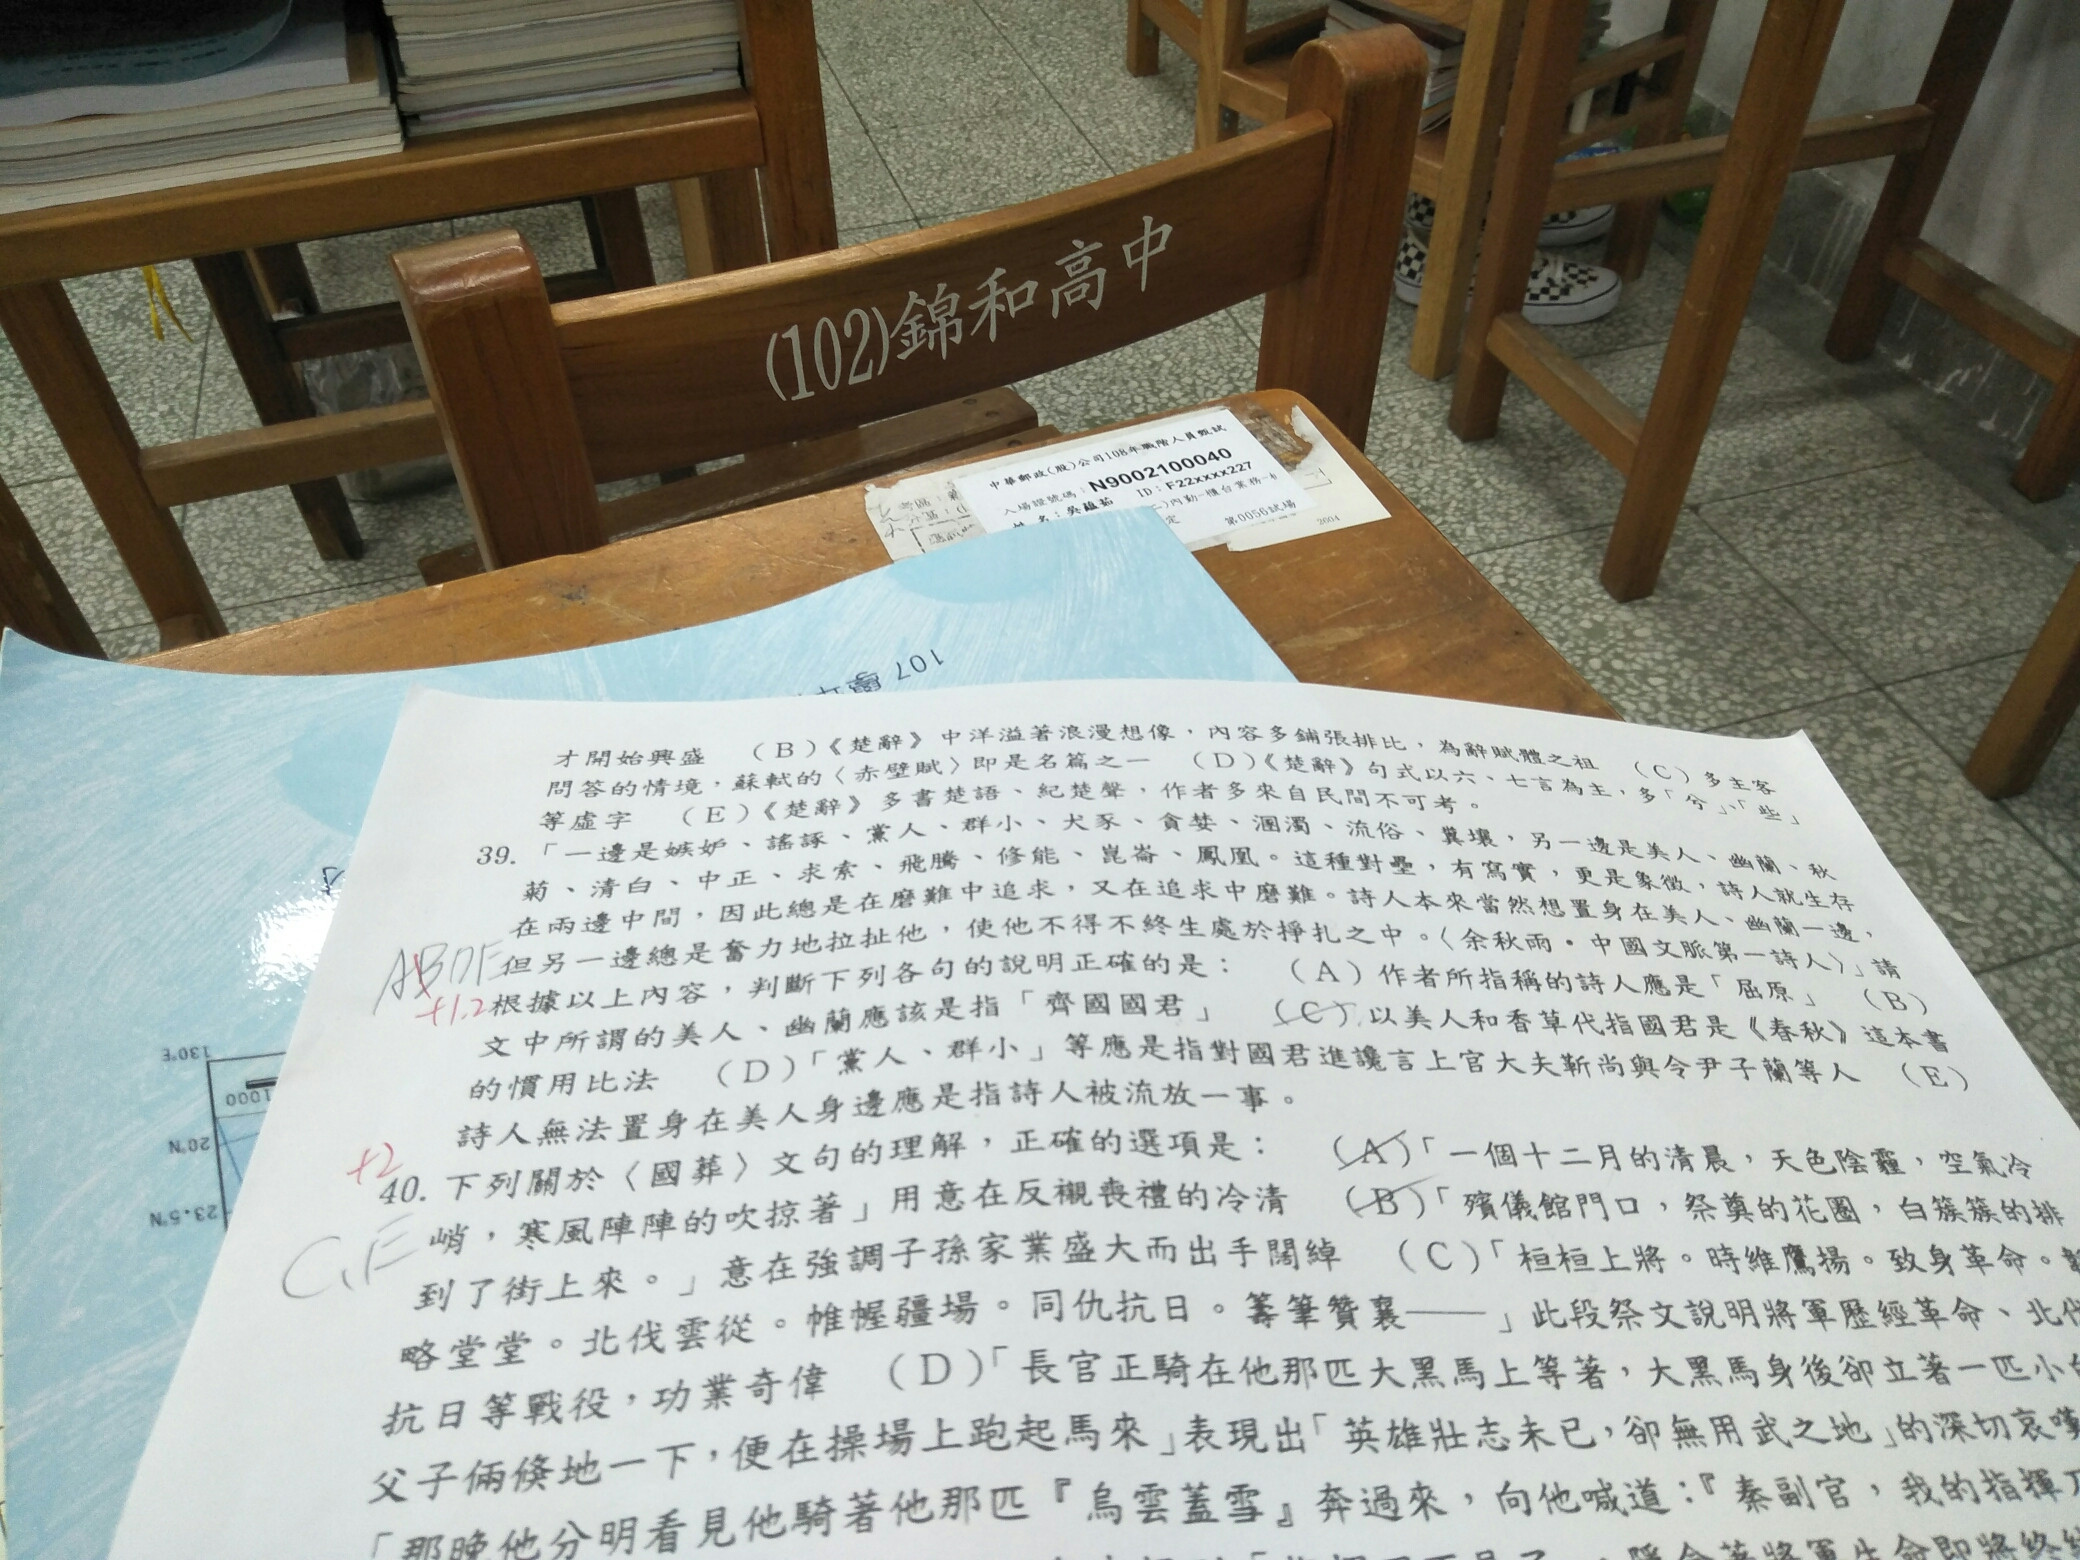 (102)錦和高中
中華郵政(股)公司108年職階人員甄試
入場證號碼：N9002100040
姓名：吳蘊茹 ID：F22xxxx227
內勤-櫃台業務-
定 第0056試場
2004
107 學年
130°E
1000
20°N
23.5°N
才開始興盛 (B)《楚辭》中洋溢著浪漫想像，內容多鋪張排比，為辭賦體之祖 (C)多主客
問答的情境，蘇軾的〈赤壁賦〉即是名篇之一 (D)《楚辭》句式以六、七言為主，多「兮」、「些」
等虛字 (E)《楚辭》多書楚語、紀楚聲，作者多來自民間不可考。
39.「一邊是嫉妒、謠諑、黨人、群小、犬豕、貪婪、溷濁、流俗、糞壤，另一邊是美人、幽蘭、秋
菊、清白、中正、求索、飛騰、修能、崑崙、鳳凰。這種對壘，有寫實，更是象徵，詩人就生存
在兩邊中間，因此總是在磨難中追求，又在追求中磨難。詩人本來當然想置身在美人、幽蘭一邊，
但另一邊總是奮力地拉扯他，使他不得不終生處於掙扎之中。〈余秋雨·中國文脈第一詩人〉」請
根據以上內容，判斷下列各句的說明正確的是： (A)作者所指稱的詩人應是「屈原」 (B)
文中所謂的美人、幽蘭應該是指「齊國國君」 (C)以美人和香草代指國君是《春秋》這本書
的慣用比法 (D)「黨人、群小」等應是指對國君進讒言上官大夫靳尚與令尹子蘭等人 (E)
詩人無法置身在美人身邊應是指詩人被流放一事。
+1.2
+2
40.下列關於〈國葬〉文句的理解，正確的選項是： (A)「一個十二月的清晨，天色陰霾，空氣冷
峭，寒風陣陣的吹掠著」用意在反襯喪禮的冷清 (B)「殯儀館門口，祭奠的花圈，白簇簇的排
到了街上來。」意在強調子孫家業盛大而出手闊綽 (C)「桓桓上將。時維鷹揚。致身革命。
略堂堂。北伐雲從。帷幄疆場。同仇抗日。籌筆贊襄——」此段祭文說明將軍歷經革命、北伐
抗日等戰役，功業奇偉 (D)「長官正騎在他那匹大黑馬上等著，大黑馬身後卻立著一匹小白
父子倆倏地一下，便在操場上跑起馬來」表現出「英雄壯志未已，卻無用武之地」的深切哀嘆
「那晚他分明看見他騎著他那匹『烏雲蓋雪』奔過來，向他喊道：『秦副官，我的指揮刀
C、E